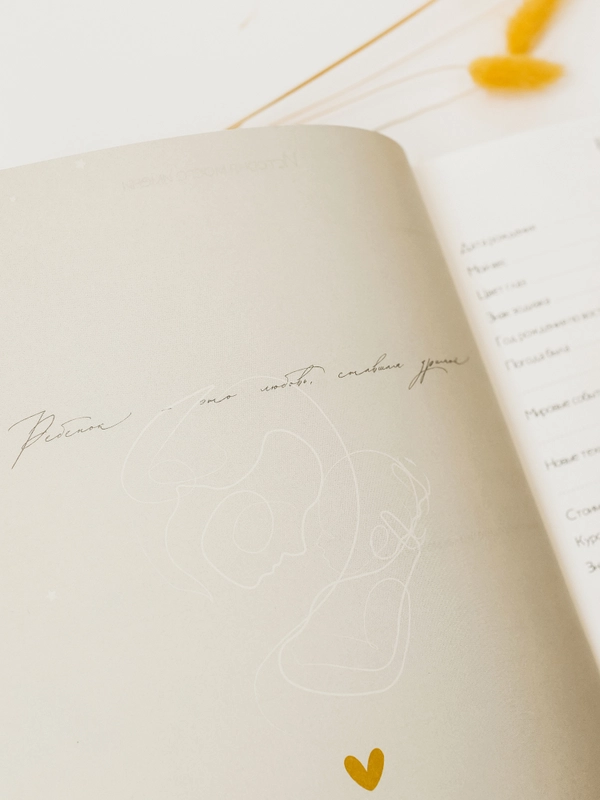 Ребенок - это любовь, ставшая зримой
Дата рождения
Цвет глаз
Знак зодиака
Год рождения по вост
Погода была
Мировые событ
Новые тех
Стоим
Курс